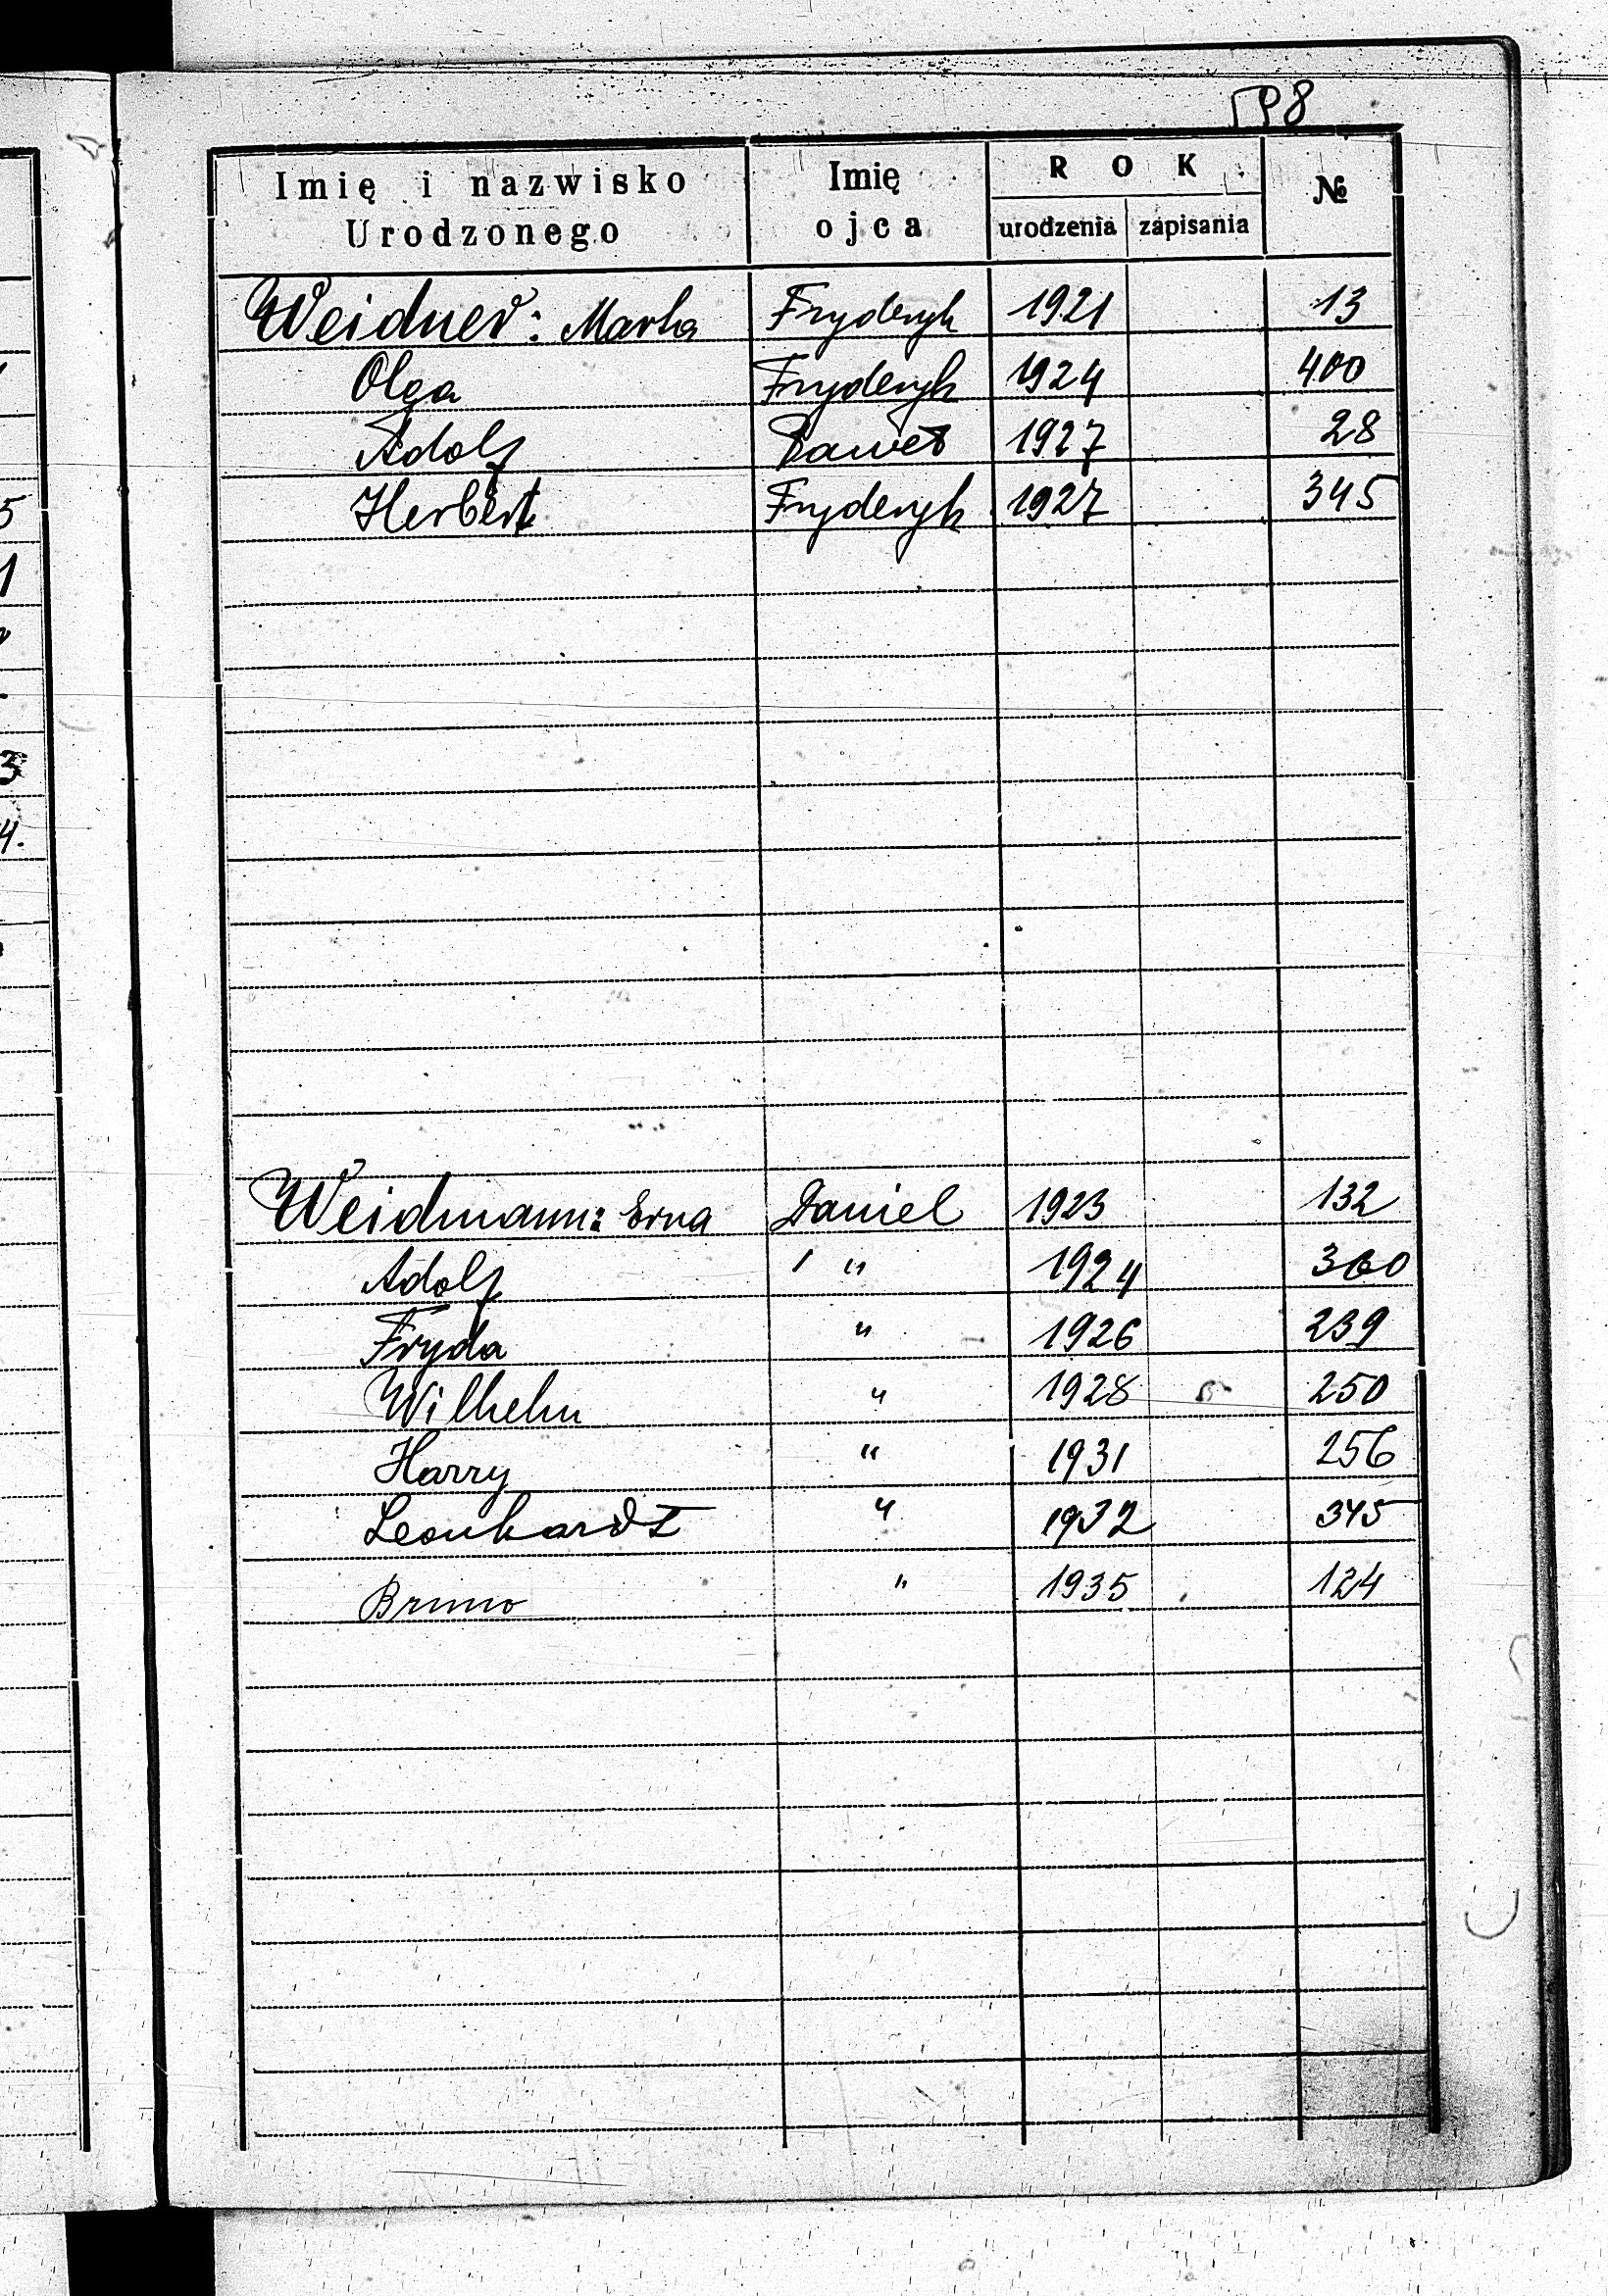 598
Imię i nazwisko Urodzonego | Imię ojca | ROK urodzenia | zapisania | №
Weidner: Marta Fryderyk 1921 13
Olga Fryderyk 1924 400
Adolf Paweł 1927 28
Herbert Fryderyk 1927 345
Weidmann: Erna Daniel 1923 132
Adolf " 1924 360
Fryda " 1926 239
Wilhelm " 1928 250
Harry " 1931 256
Leonhardt " 1932 345
Bruno " 1935 124